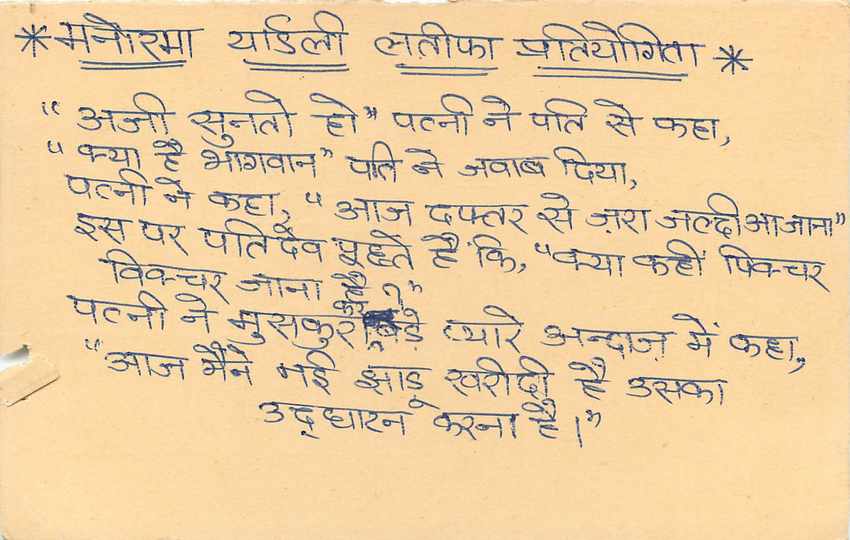 * मनोरमा यार्डली लतीफा प्रतियोगिता *
“अजी सुनते हो” पत्नी ने पति से कहा,
“क्या है भागवान” पति ने जवाब दिया,
पत्नी ने कहा, “आज दफ्तर से ज़रा जल्दी आ जाना”
इस पर पतिदेव पूछते हैं कि, “क्या कहीं पिक्चर
विक्चर जाना है ?”
पत्नी ने मुसकुरा कर बड़े प्यारे अन्दाज़ में कहा,
“आज मैंने नई झाडू खरीदी है उसका
उद्घाटन करना है।”